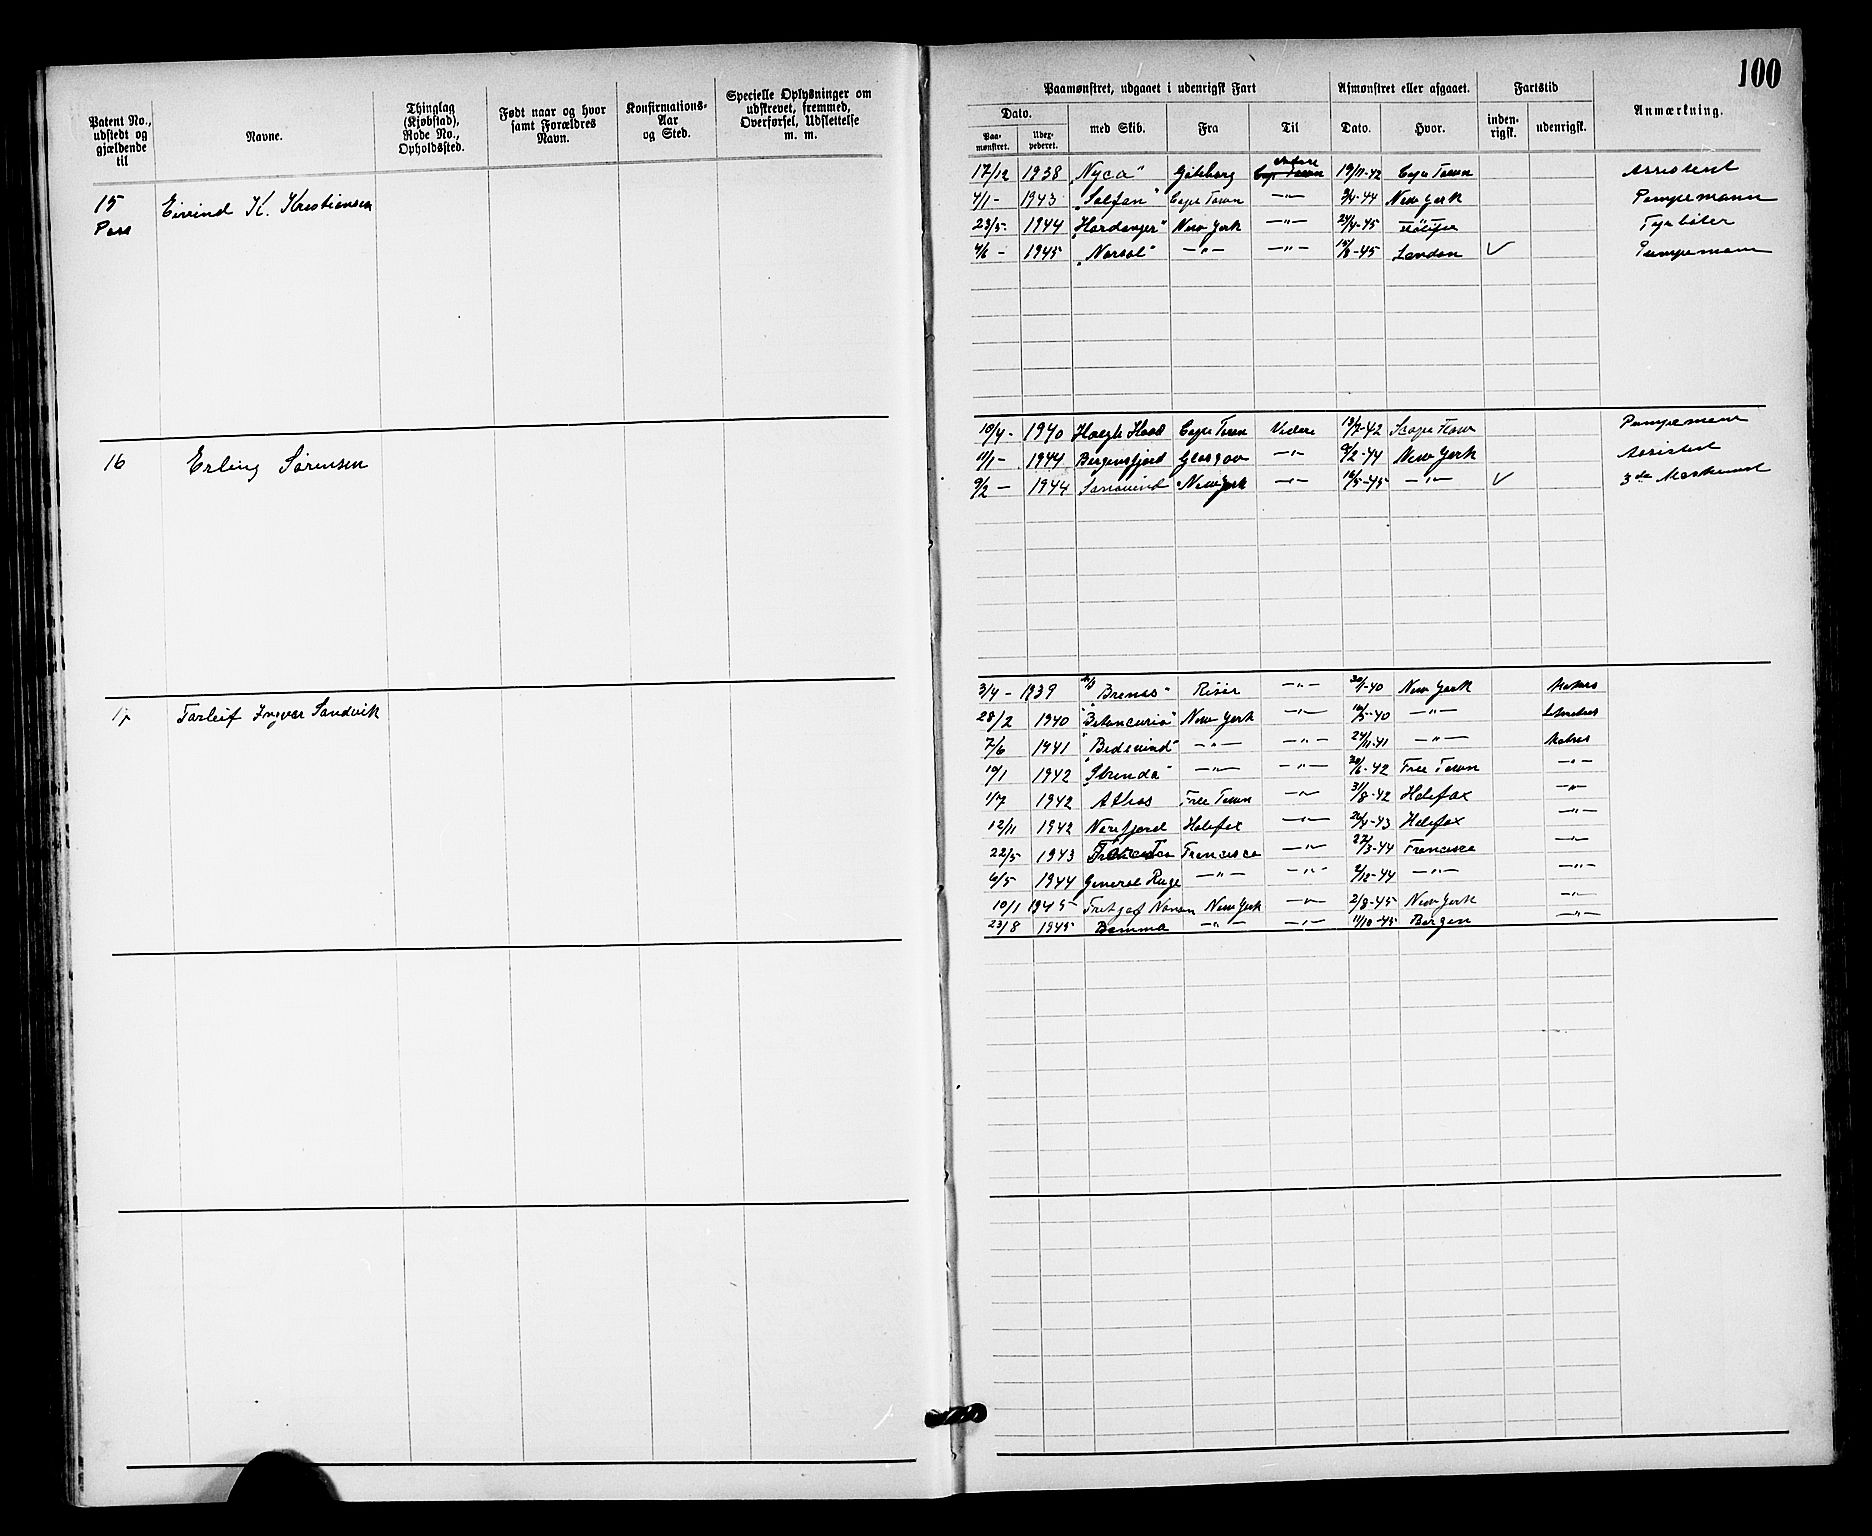 100
Patent No., udstedt og gjældende til
Navne.
Thinglag (Kjøbstad), Rode No., Opholdssted.
Født naar og hvor samt Forældres Navn.
Konfirmations-Aar og Sted.
Specielle Oplysninger om udskrevet, fremmed, Overførsel, Udslettelse m. m.
Paamønstret, udgaaet i udenrigsk Fart
Afmønstret eller afgaaet.
Fartstid
Anmærkning.
Dato.
Paa-mønstret.
Udex-pederet.
med Skib.
Fra
Til
Dato.
Hvor.
inden-rigsk.
udenrigsk.
15 Eivind K. Kristiansen
Pass
17/12 1938 "Nyca" Göteborg Cape Town 19/11-42 Cape Town Assistent
4/1- 1943 "Solfon" Cape Town —"— 3/4-44 New York Pumpemann
23/5- 1944 "Hardanger" New York —"— 24/4-45 Fyrbøter
4/6 - 1945 "Norsol" —"— —"— 15/8-45 London ✓ Pumpemann
16 Erling Sørensen
10/4- 1940 Høegh Hood Cape Town Videre 19/2-42 Cape Town Pumpemann
11/1- 1944 Bergensfjord Glasgow —"— 9/2-44 New York Assistent
9/2 - 1944 New York —"— 16/5-45 —"— ✓ 3de Maskinist
17 Torleif Ingvar Sandvik
3/4 - 1939 "Brenas" Risør —"— 30/1-40 New York Matros
28/2 1940 "Betancuria" New York —"— 16/5-40 —"—
7/6 1941 "Bidevind" —"— —"— 24/11-41 —"— Matros
10/1 1942 "Strinda" —"— —"— 20/6-42 Free Town —"—
1/7 1942 Athos Free Town —"— 31/8-42 Halifax —"—
12/11 1942 Norefjord Halifax —"— 26/4-43 Halifax —"—
22/5 1943 Francisco —"— 27/3-44 Francisco —"—
6/5 1944 General Ruge —"— —"— 2/12-44 —"— —"—
10/1 1945 Fritjof Nansen New York —"— 2/8-45 New York —"—
23/8 1945 Bomma —"— —"— 11/10-45 Bergen —"—